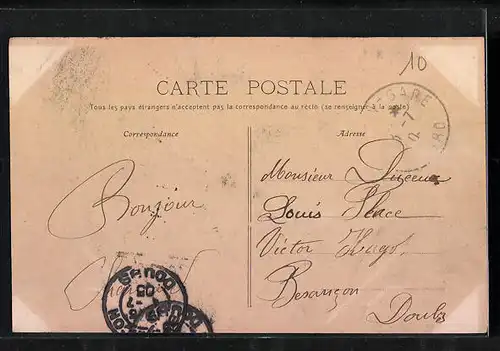 10
CARTE POSTALE
Tous les pays étrangers n'acceptent pas la correspondance au recto (se renseigner à la poste)
Correspondance
Adresse
GARE
Monsieur
Louis Place
Victor Hugo
Besançon
Doubs
Bonjour
DOUBS